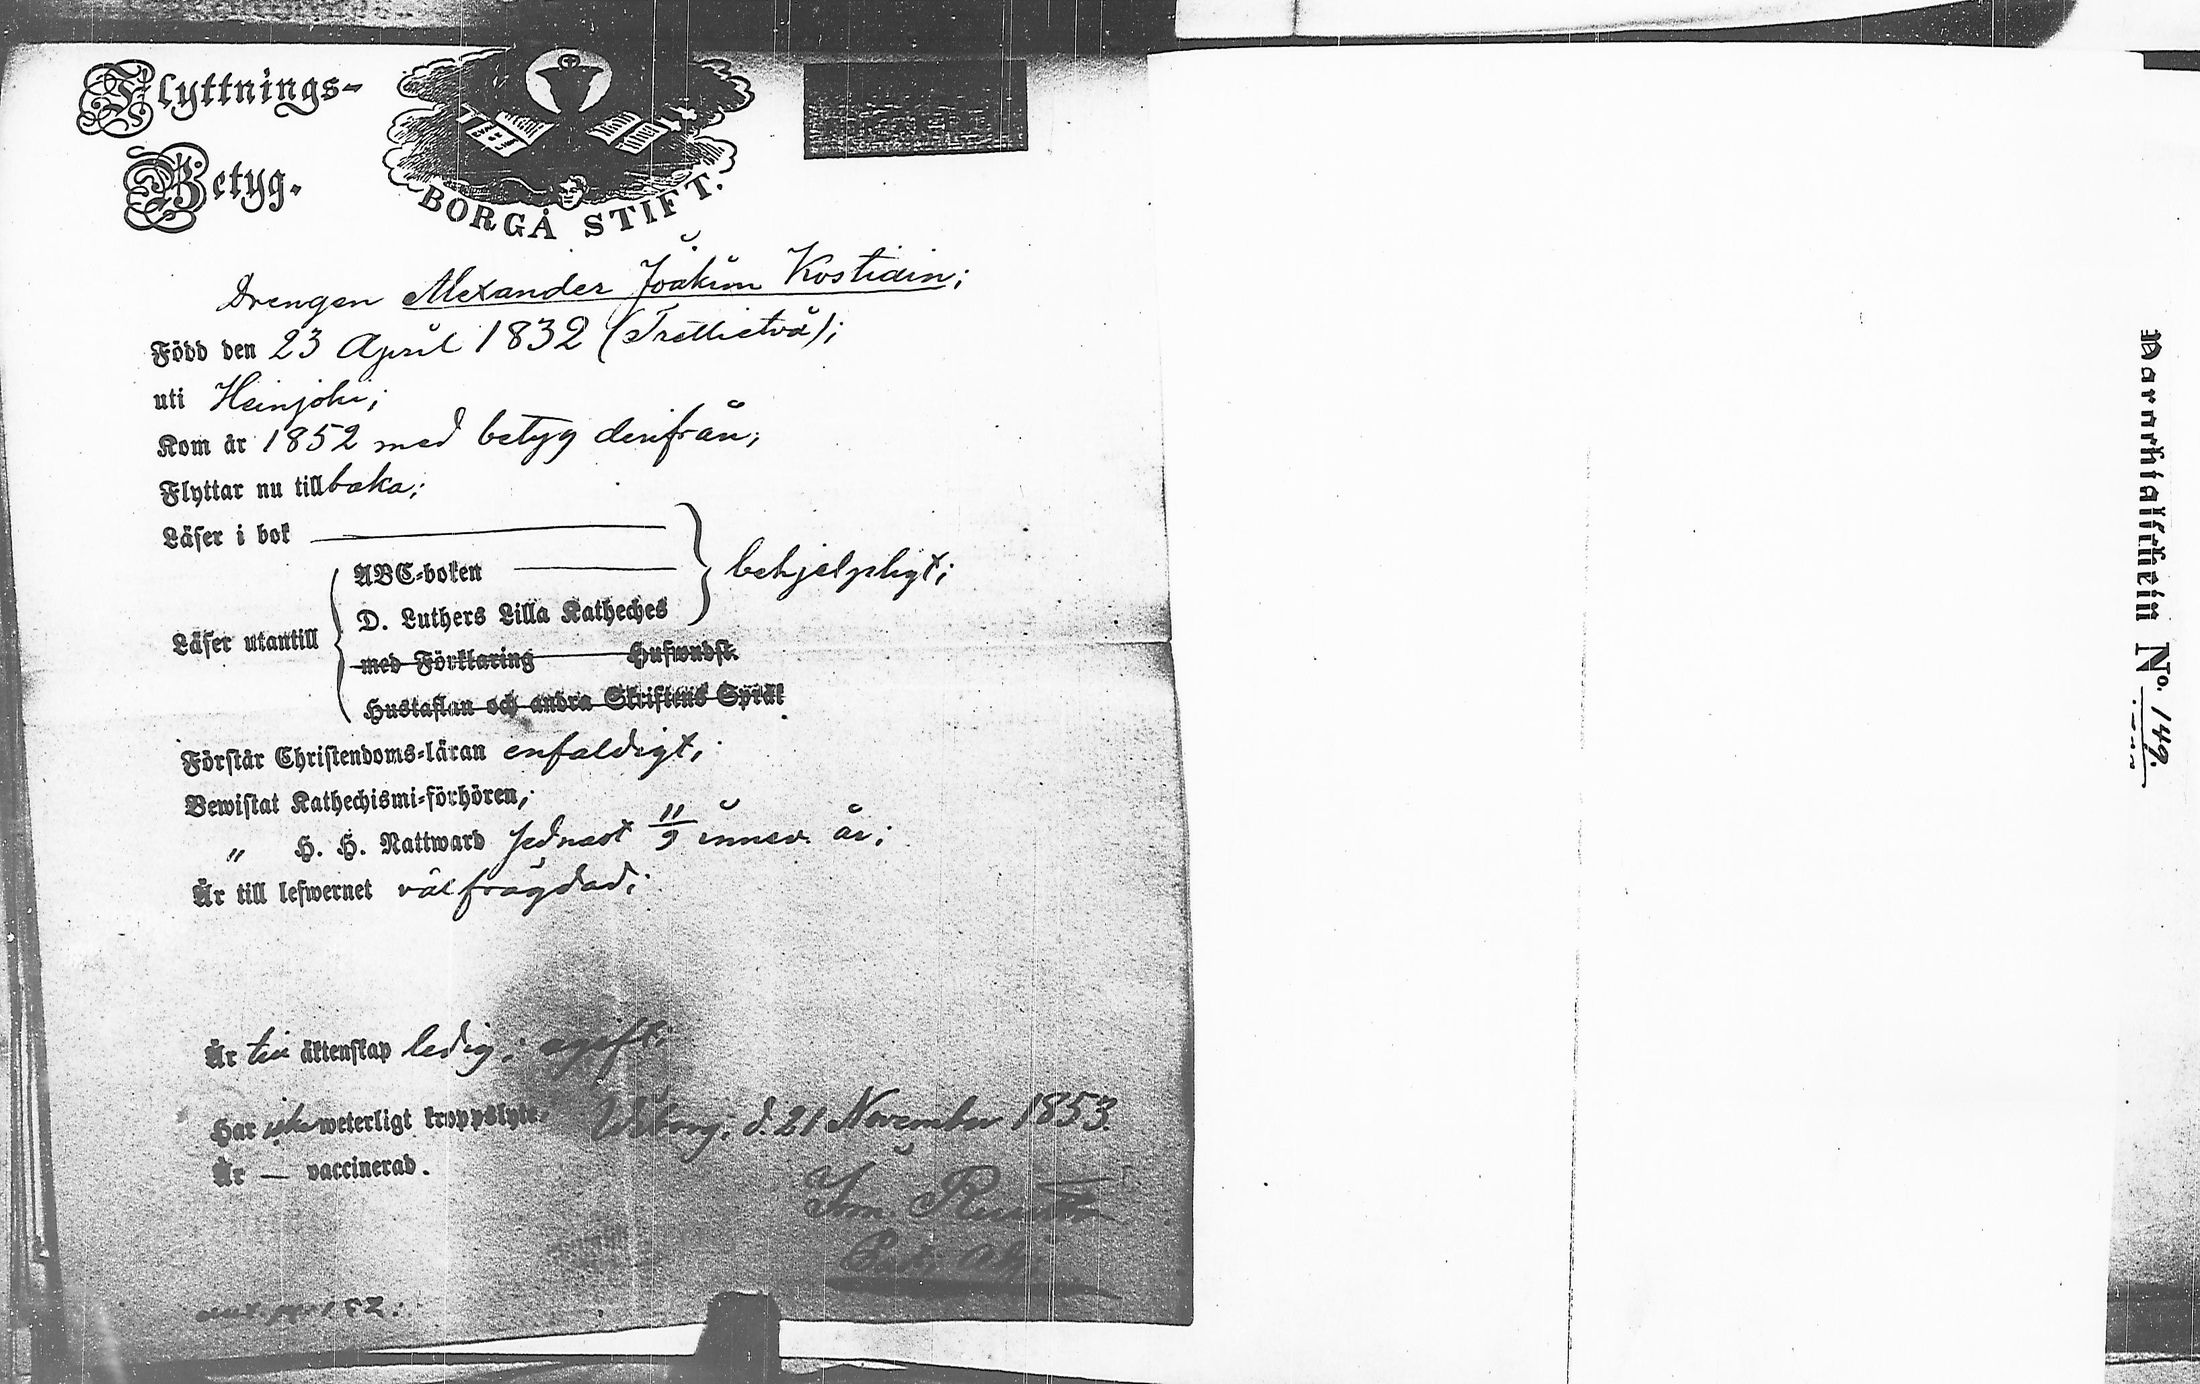 Flyttnings-
Betyg.
BORGÅ STIFT.
Drengen Alexander Joakim Kostiain;
Född den 23 April 1832 (Trettietvå);
uti Heinjoki;
Kom år 1852 med betyg derifrån;
Flyttar nu tillbaka;
Läser i bok
ABC-boken
behjelpligt;
D. Luthers Lilla Katheches
Läser utantill
med Förklaring Huswudst.
Hustaflan och andra Skriftens Språk
Förstår Christendoms-läran enfaldigt;
Bewistat Kathechismi-förhören;
" H. H. Nattward sednast 11/9 innev. år;
Är till lefwernet välfrägdad;
Är till äktenskap ledig; ogift;
Har icke weterligt kroppslyte. Wiborg, d. 21 November 1853.
Är — vaccinerad.
Parochialschein No. 149.